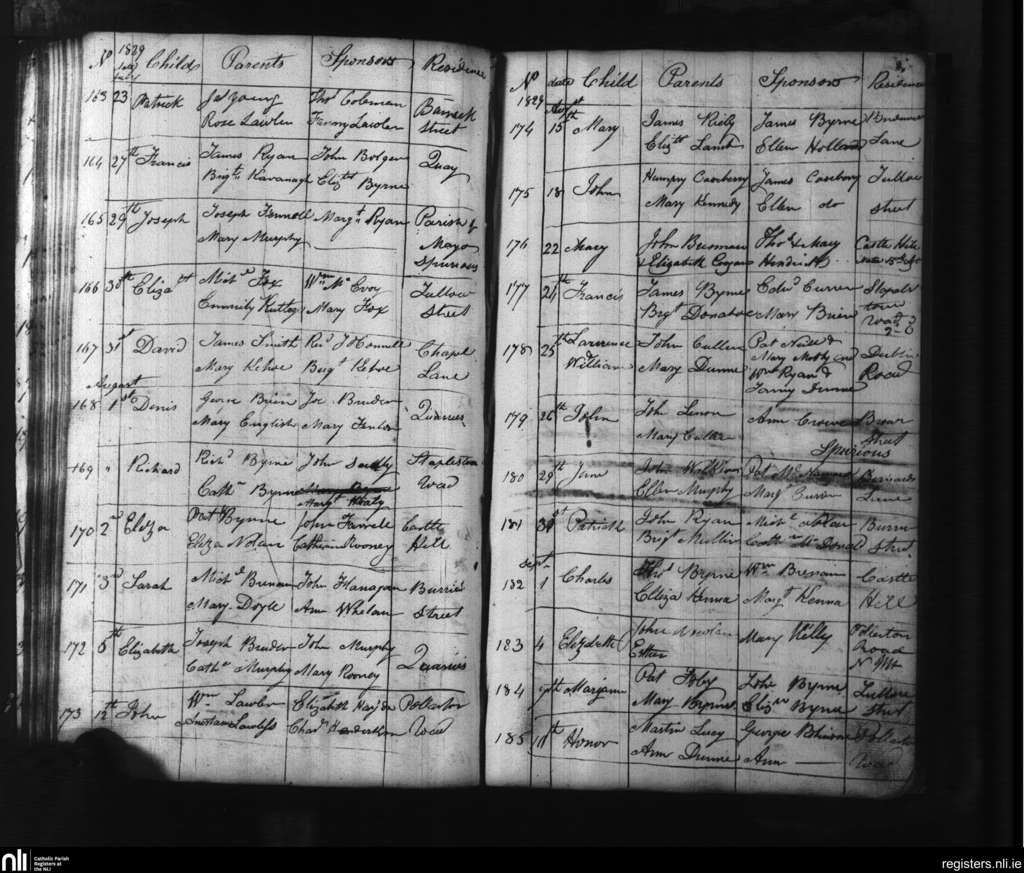 No 1829 July Child Parents Sponsors Residence
163 23 Patrick Jas Young Thos Coleman Barrack
Rose Lawler Fanny Lawler Street
164 27th Francis James Ryan John Bolger Quay
Brigt Kavanagh Elizth Byrne
165 29th Joseph Joseph Fennell Margt Ryan Parish of
Mary Murphy Mayo
Spurious
166 30th Elizath Michl Fox Wm Mc Evoy Tullow
Mary Fox Street
167 31st David James Smith Richd O'Connell Chapel
Mary Kehoe Brigt Kehoe Lane
August
168 1st Denis George Brien Jos Bruder Quarries
Mary English Mary Fenlon
169 " Richard Richd Byrne John Staplestown
Cathn Byrne Road
Margt Healy
170 2nd Eliza Pat Byrne John Farrell Castle
Eliza Nolan Catherine Rooney Hill
171 3rd Sarah Michl Brenan John Flanagan Burrin
Mary Doyle Ann Whelan Street
172 6th Elizabeth Joseph Bruder John Murphy
Cathn Murphy Mary Rooney Quarries
173 12th John Wm Lawler Elizabeth Pollerton
Lawless Road
No date Child Parents Sponsors Residence
1829 Augst
174 15th Mary James James Byrne
Elizth Lamb Ellen Holland Lane
175 18 John Humpry Casebery James Casebery Tullow
Mary Kennedy Ellen do Street
176 22 Mary John Thos & Mary Castle Hill
& Elizabeth Hendrick
177 24th Francis James Byrne Edwd Curren
Brigt Donahoe Mary Brien Road
178 25th Laurence John Cullen Pat Neill &
& William Mary Dunne Mary and Dublin
Wm Ryan & Road
Fanny Dunne
179 26th John Joh Lenon Ann Crowe
Mary Street
Spurious
180 29th Jane John Pat Bernards
Ellen Murphy Margt Curren Lane
181 31st Patrick John Ryan Michl Burrin
Brigt Mullin Cathn Mc Donald Street
Sept
182 1 Charles Thos Byrne Wm Brenan Castle
Eliza Kenna Margt Kenna Hill
183 4 Elizabeth John Nowlan Mary Kelly Pollerton
Esther Road
184 9th Marjane Pat John Byrne Tullow
Mary Byrne Elizth Byrne Street
185 11th Honor Martin Lucy George Pollerton
Ann Dunne Ann Road
nli Catholic Parish
Registers at
the NLI
registers.nli.ie